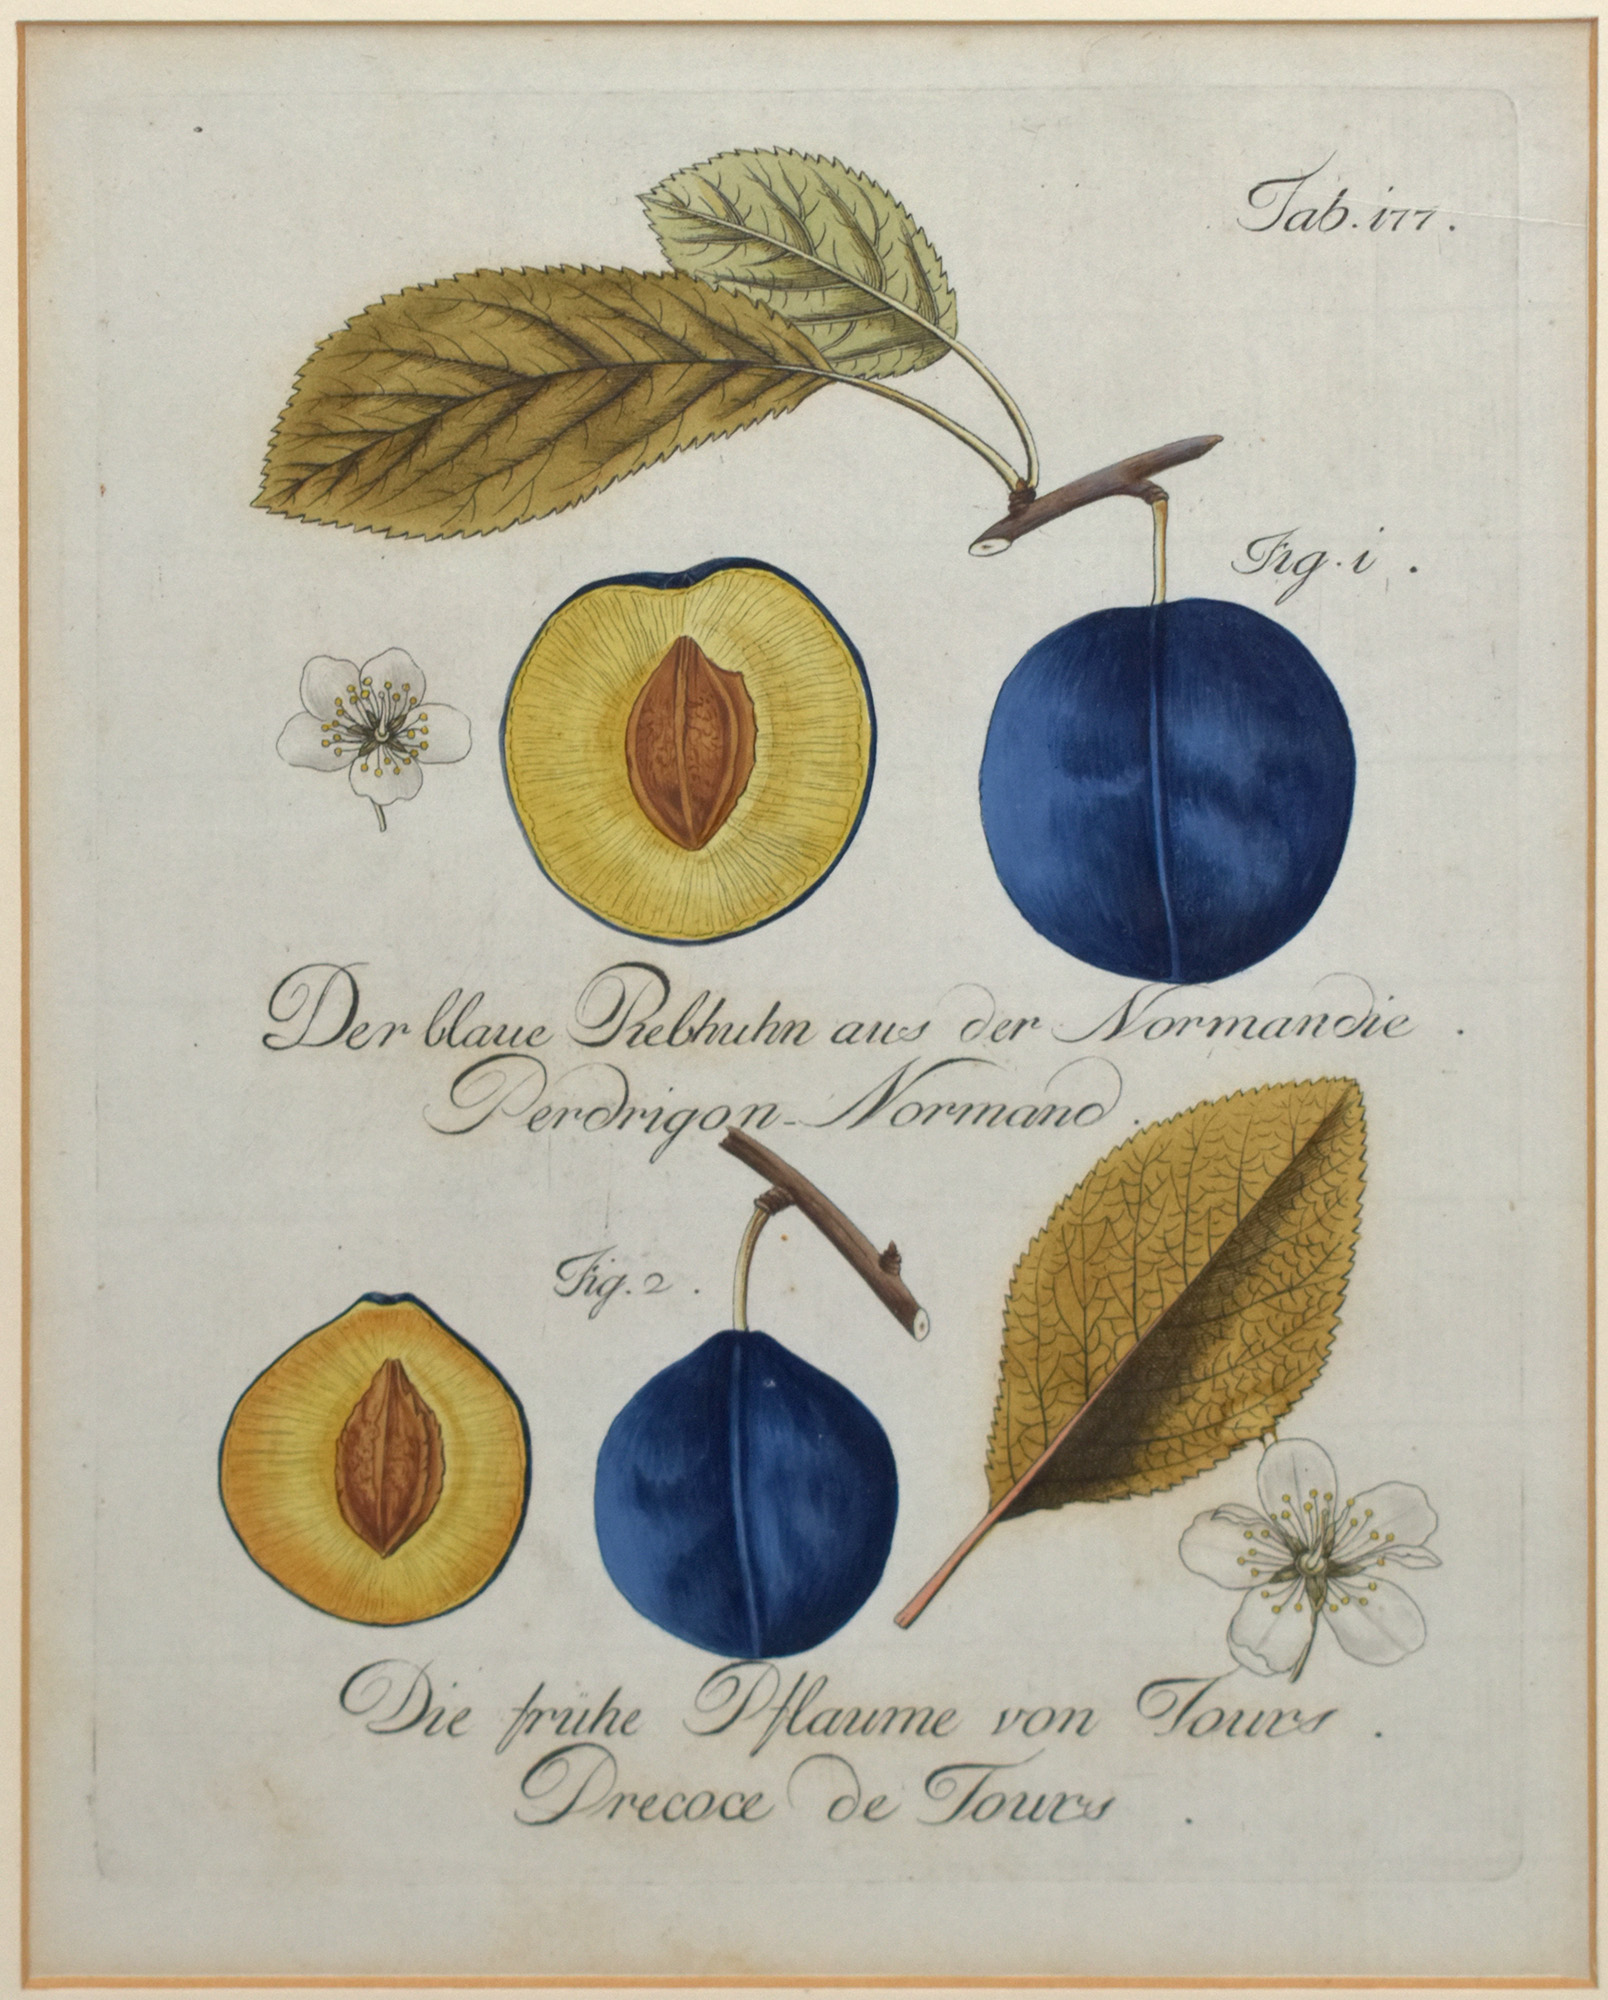 Tab. 177.
Fig. 1.
Der blaue Rebhuhn aus der Normandie.
Perdrigon-Normand.
Fig. 2.
Die frühe Pflaume von Tours.
Precoce de Tours.